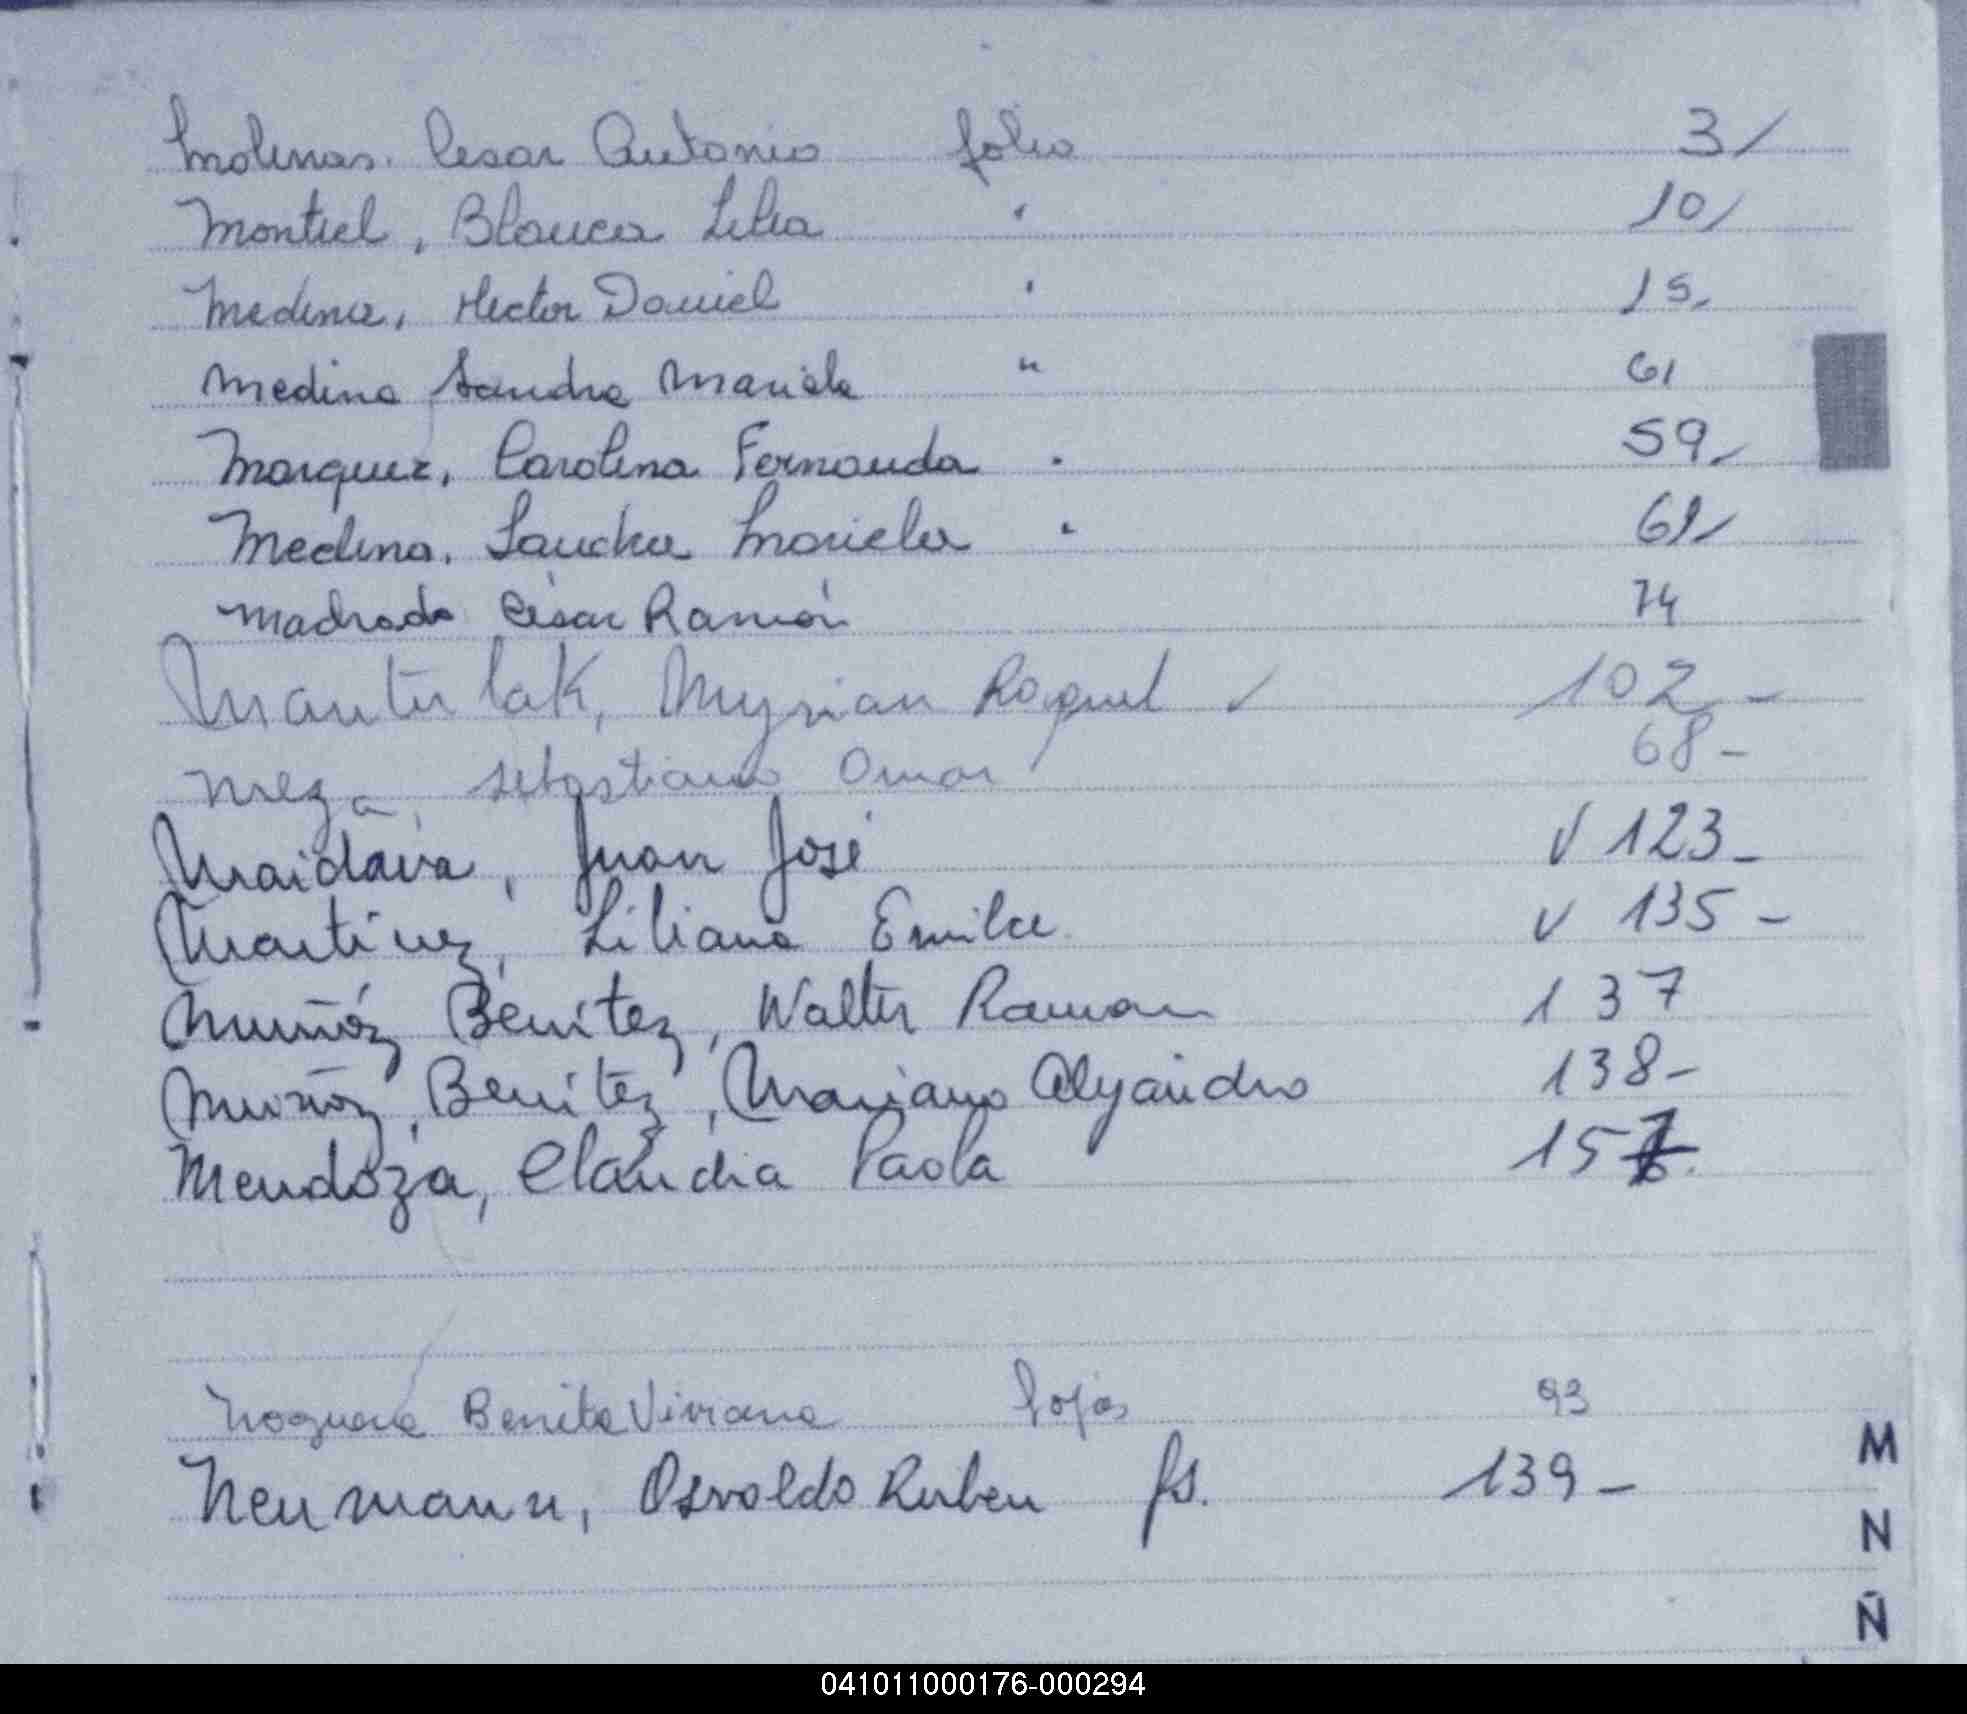 Molinas. Cesar Antonio folio 3/
Montiel, Blanca Lilia " 10/
Medina, Hector Daniel " 15-
Medina Sandra Mariela " 61
Marquez, Carolina Fernanda " 59-
Medina. Sandra Mariela " 61/
Madrado César Ramón 74
Manturlak, Myrian Raquel ✓ 102-
Meza, Sebastiano Omar 68-
Maidana, Juan José ✓ 123-
Martinez, Liliana Emilce ✓ 135-
Muñóz Benítez, Walter Ramon 137
Muñoz, Benítez, Mariano Alejandro 138-
Mendoza, Claudia Paola 157.
Noguera Benita Viviana fojas 93
Neumann, Osvaldo Ruben fs. 139-
M
N
Ñ
041011000176-000294